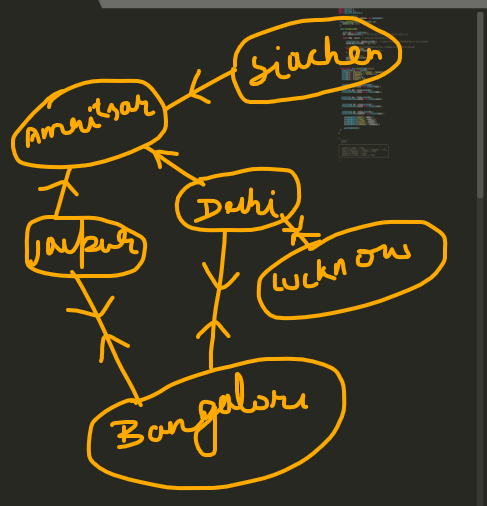 Siachen
Amritsar
Delhi
Jaipur
Lucknow
Bangalore